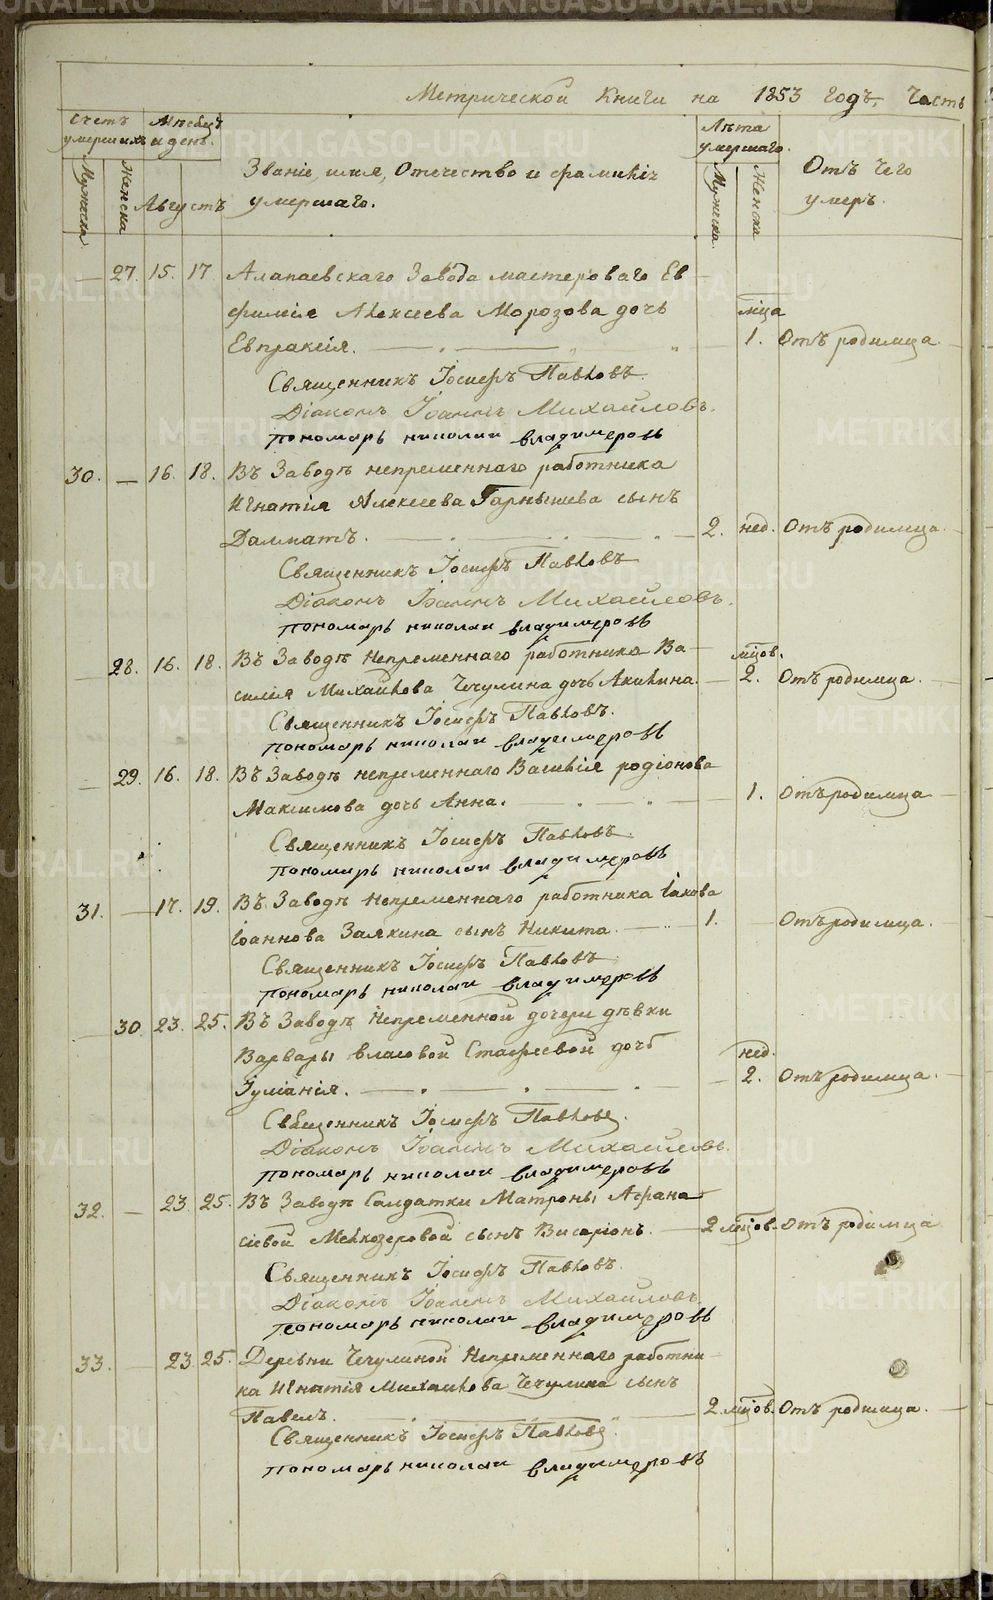 Метрической Книги на 1853 годъ, Часть
Счетъ умершихъ
Мѣсяцъ и день.
Званіе, имя, Отечество и фамилія умершаго.
Лѣта умершаго.
Отъ чего умеръ.
Мужеска
Женска
Августъ
Мужеска.
Женска
— 27. 15. 17. Алапаевскаго Завода мастероваго Ев
фимія Алексеева Морозова дочь мѣсца
Евпраксія. 1. Отъ родимца.
Священникъ Іосифъ Павловъ.
Діаконъ Іоаннъ Михайловъ.
пономарь николаи владимеровъ
30. — 16. 18. Въ Заводѣ непременнаго работника
Игнатія Алексеева Гарнышева сынъ
Далматъ. 2. нед. Отъ родимца.
Священникъ Іосифъ Павловъ
Діаконъ Іоаннъ Михайловъ.
пономарь николаи владимеровъ
— 28. 16. 18. Въ Заводѣ Непременнаго работника Ва- мѣсцов.
силія Михайлова Чечулина дочь Акилина. 2. Отъ родимца.
Священникъ Іосифъ Павловъ.
пономарь николаи владимеровъ
— 29. 16. 18. Въ Заводѣ непременнаго Василія родіонова
Максимова дочь Анна. 1. Отъ родимца
Священникъ Іосифъ Павловъ
пономарь николаи владимеровъ
31. — 17. 19. Въ Заводѣ Непременнаго работника Іакова
Іоаннова Заякина сынъ Никита. 1. Отъ родимца.
Священникъ Іосифъ Павловъ
пономарь николаи владимеровъ
— 30. 23. 25. Въ Заводѣ Непременной дочери дѣвки
Варвары Власовой Стафеевой дочь нед.
Іуліанія. 2. Отъ родимца.
Священникъ Іосифъ Павловъ.
Діаконъ Іоаннъ Михайловъ.
пономарь николаи владимеровъ
32. — 23. 25. Въ Заводѣ Салдатки Матроны Афана
сіевой Мелкозеровой сынъ Висаріонъ. 2 мѣсцов. отъ родімца
Священникъ Іосифъ Павловъ.
Діаконъ Іоаннъ Михайловъ
пономарь николаи владимеровъ
33. — 23. 25. Деревни Чечулиной Непременнаго работни-
ка Игнатія Михаилова Чечулина сынъ
Павелъ. 2 мѣсцов. Отъ родимца.
Священникъ Іосифъ Павловъ.
пономарь николаи владимеровъ
METRIKI.GASO-URAL.RU